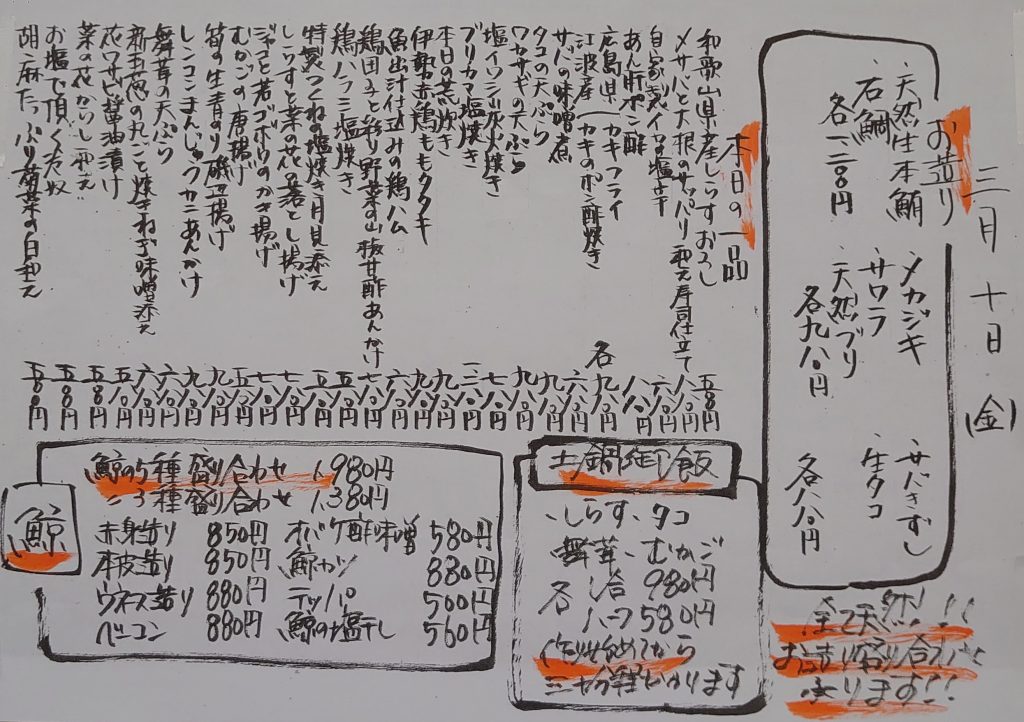 三月十日(金)
お造り
・天然生本鮪
・石鯛
各一、二八〇円
・メカジキ
・サワラ
・天然ブリ
各九八〇円
・サバきずし
・生タコ
各八八〇円
全て天然!!
おつくり盛り合わせ
承ります!!
本日の一品
和歌山県産しらすおろし 五八〇円
〆サバと大根のサッパリ和え寿司仕立て 八八〇円
自家製イカの塩辛 六八〇円
あん肝ポン酢 八八〇円
広島県 カキフライ
江波産 カキのポン酢焼き 各九八〇円
サバの味噌煮
タコの天ぷら
ワカサギの天ぷら
塩イワシ炭火焼き
ブリカマ塩焼き
本日の荒炊き
伊勢赤鶏ももタタキ
魚出汁仕込みの鶏ハム
鶏団子と彩り野菜の山椒甘酢あんかけ
鶏ハラミ塩焼き
特製つくねの塩焼き月見添え
しらすと菜の花の落とし揚げ
ジャコと若ゴボウのかき揚げ
むかごの唐揚げ
筍の生青のり磯辺揚げ
レンコンまんじゅうカニあんかけ
舞茸の天ぷら
新玉葱の丸ごと焼きねぎ味噌添え
花ワサビ醤油漬け
菜の花からし和え
お塩で頂く冷奴 五八〇円
胡麻たっぷり菊菜の白和え 五八〇円
土鍋御飯
・しらす・タコ
・舞茸・むかご
各一合 980円
ハーフ 580円
作り始めてから
三十分程かかります
鯨
鯨の5種盛り合わせ 1,980円
〃3種盛り合わせ 1,380円
赤身造り 850円
本皮造り 850円
ウネス造り 880円
ベーコン 880円
オバケ酢味噌 580円
鯨カツ 880円
テッパ 500円
鯨の塩干し 560円